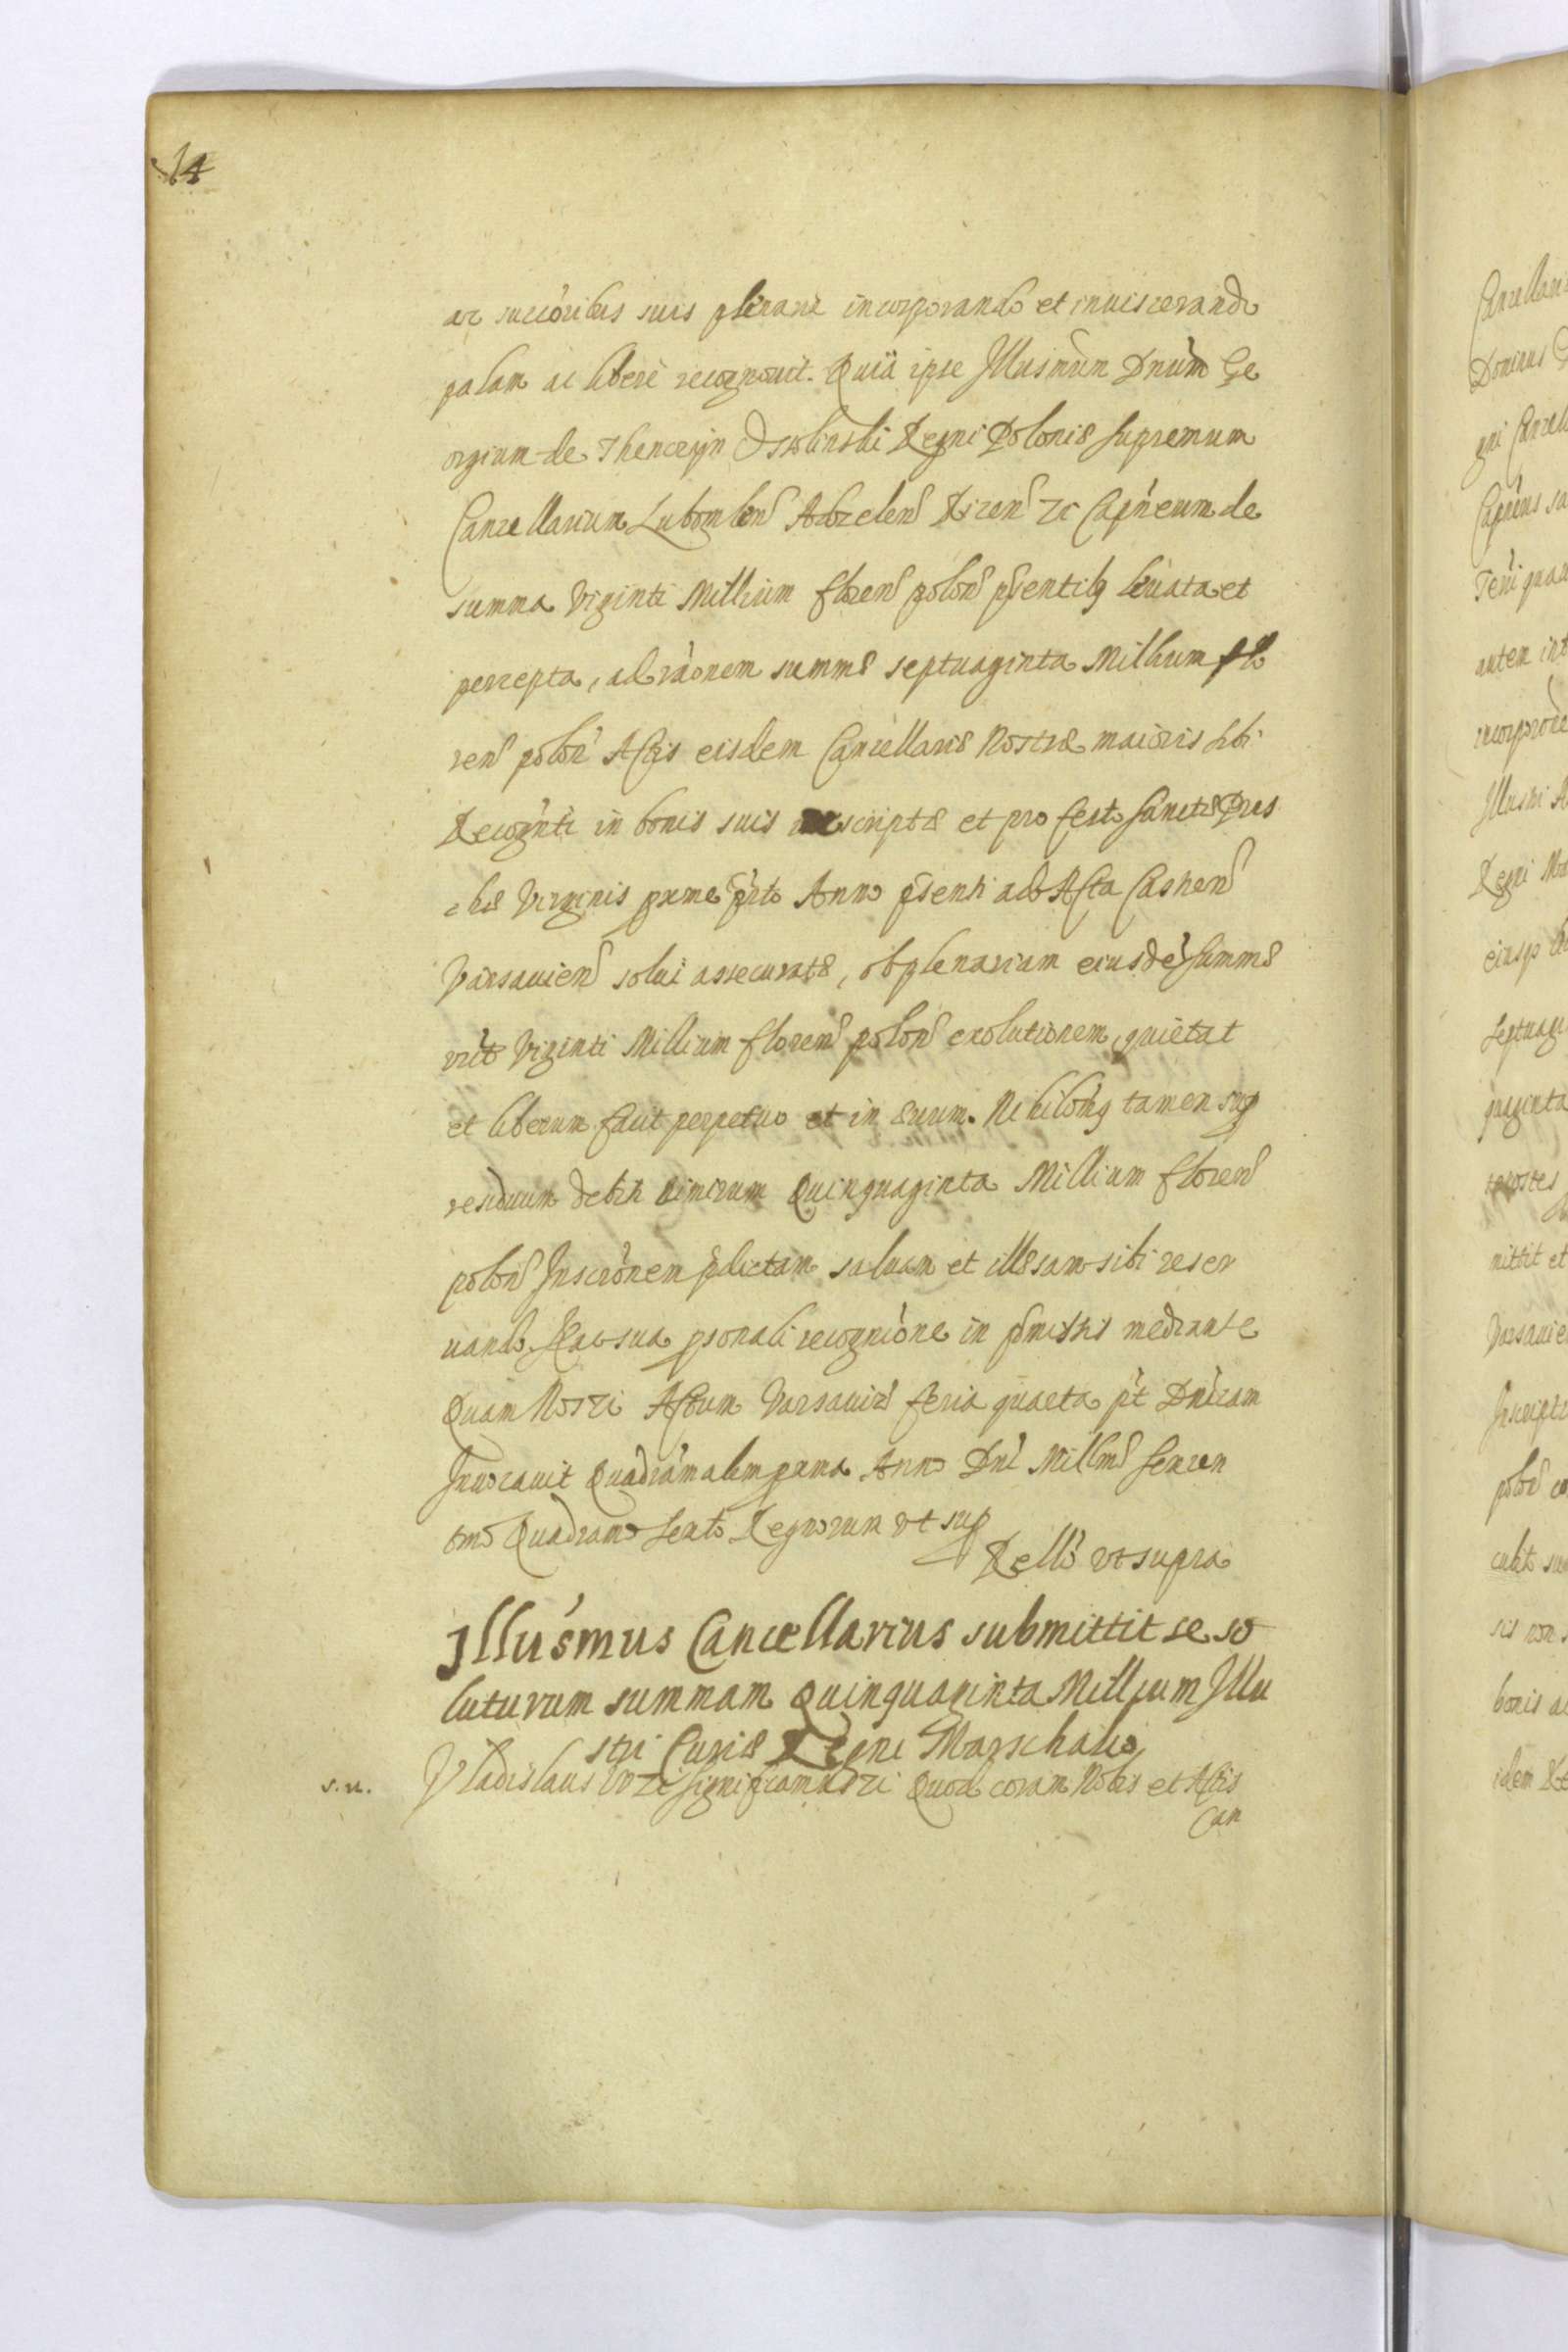 14
ac succōribus suis plenarie incorporando et inuiscerando
palam ac libere recognouit. Quia ipse Illusm̄um Dnūm Ge
orgium de Thenczyn Ossolinski Regni Poloniæ Supremum
Cancellarium Lubomlen̄ Adzelen̄ Ricen̄ zc Capn̄eum de
summa Viginti Millium floren̄ polon̄ p̄sentibq leuata et
percepta, ad rāonem summæ septuaginta Millium flo
ren̄ polon̄ Actis eisdem Cancellariæ Nostræ maioris sibi
Recogn̄ti in bonis suis inscriptæ et pro festo Sanctæ Pras
chæ Virginis proxime p̄rto Anno p̄senti ad Acta Castren̄
Varsauien̄ solui assecuratæ, ob plenariam eiusdē Summæ
vīzt Viginti Millium floren̄ polon̄ exolutionem, quietat
et liberum facit perpetuo et in æuum. Nihilōmq tamen sup
residuum debiti nimirum Quinquaginta Millium floren̄
polon̄ Inscrōnem p̄dictam saluam et illæsam sibi reser
uando. Hac sua p̄sonali recognīone in p̄missis mediante
Quam Nos zc Actum Varsauiæ feria quarta p̄t Dnīcam
Inuocauit Quadrām̄alem prima Anno Dnī Millm̄o Sexcen
tmo Quadramo Sexto Regnorum vt sup
Rellō vt supra
Illus̄mus Cancellarius submittit se so
luturum summam Quinquaginta Millium Illu
stri Curiæ Regni Marschalco
s. u.
Vladislaus IV zc Significamus zc Quod coram Nobis et Actis
Can